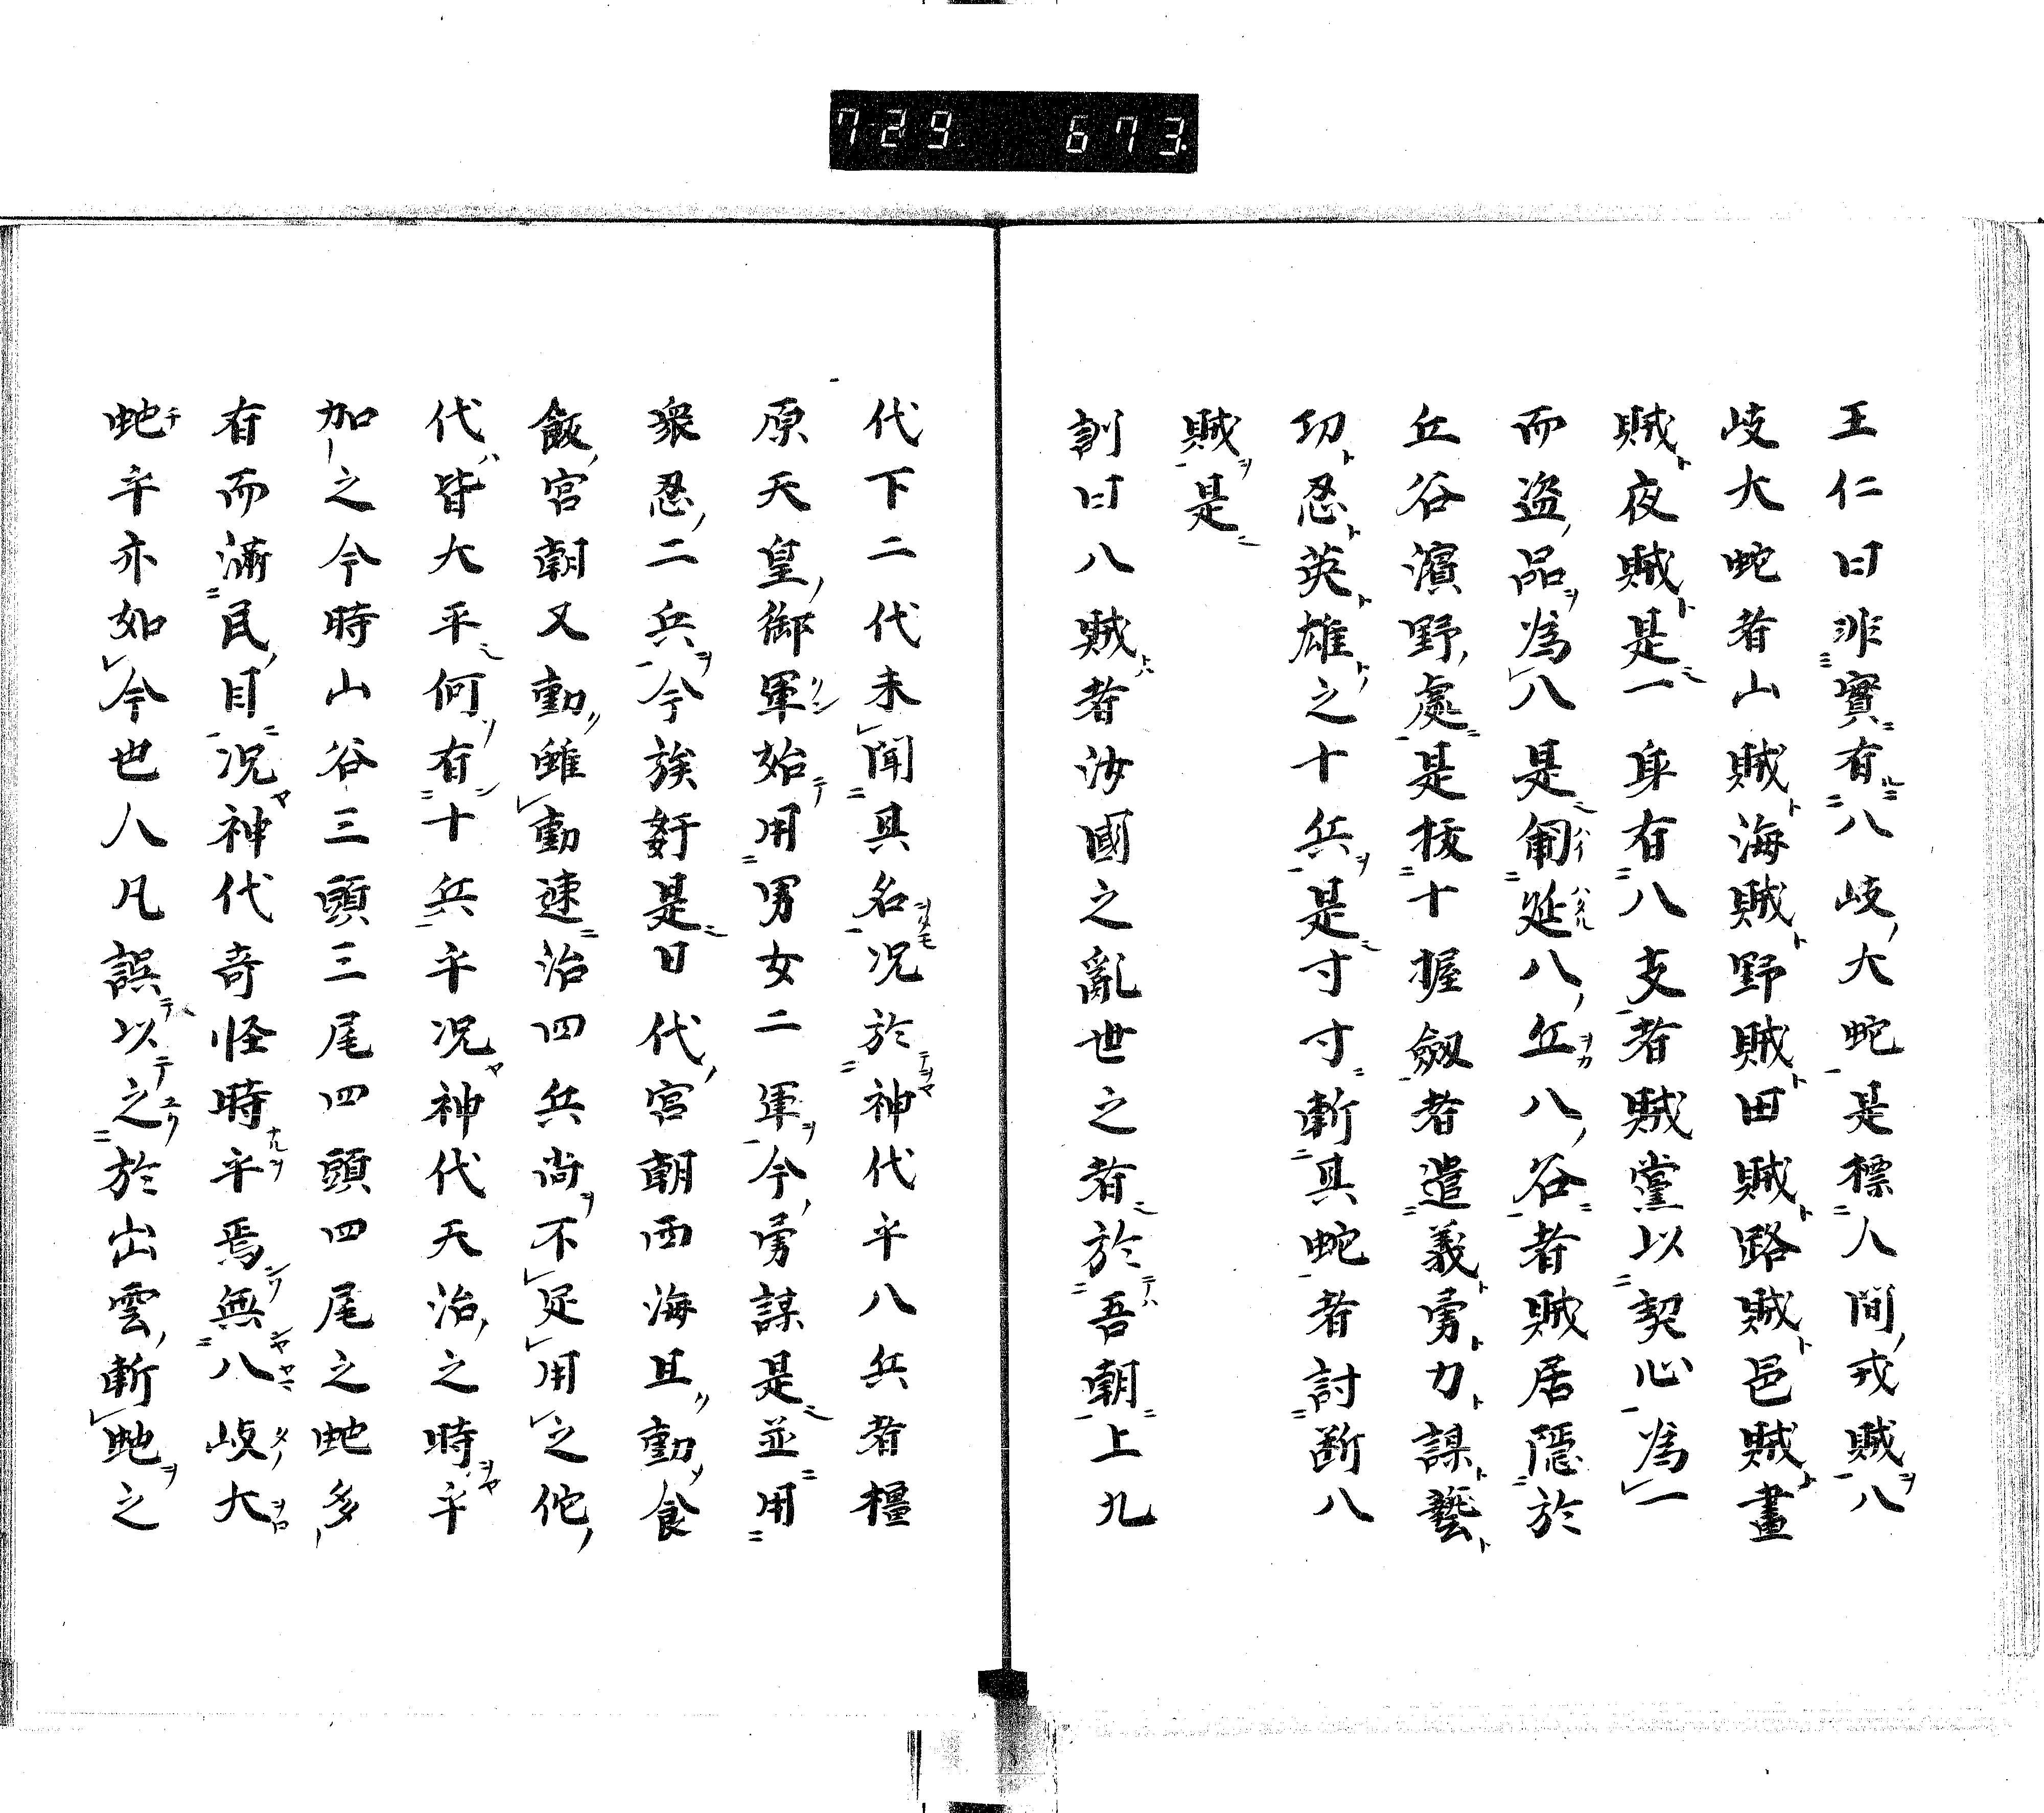 729 673
王仁曰非實有八岐大蛇是標人間戎賊八
岐大蛇者山賊海賊野賊田賊路賊邑賊晝
賊夜賊是一身有八支者賊黨以契心為一
而盗品為八是匍延八丘八谷者賊居隱於
丘谷濱野處是拔十握劔者遣義勇力謀藝
功忍英雄之十兵是寸寸斬其蛇者討断八
賊是
訓曰八賊者汝國之亂世之者於吾朝上九
代下二代未聞具名况於神代乎八兵者橿
原天皇御軍始用男女二軍今勇謀是並用
衆忍二兵今族奸是日代宮朝西海且動食
飯宮朝又動雖動速治四兵尚不足用之佗
代皆大平何有十兵乎况神代天治之時乎
加之今時山谷三頭三尾四頭四尾之虵多
有而滿民目况神代奇怪時乎焉無八岐大
虵乎亦如今也人凡誤以之於出雲斬虵之